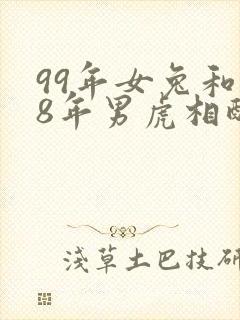 99年女兔和
8年男虎相配
淺草土巴技研